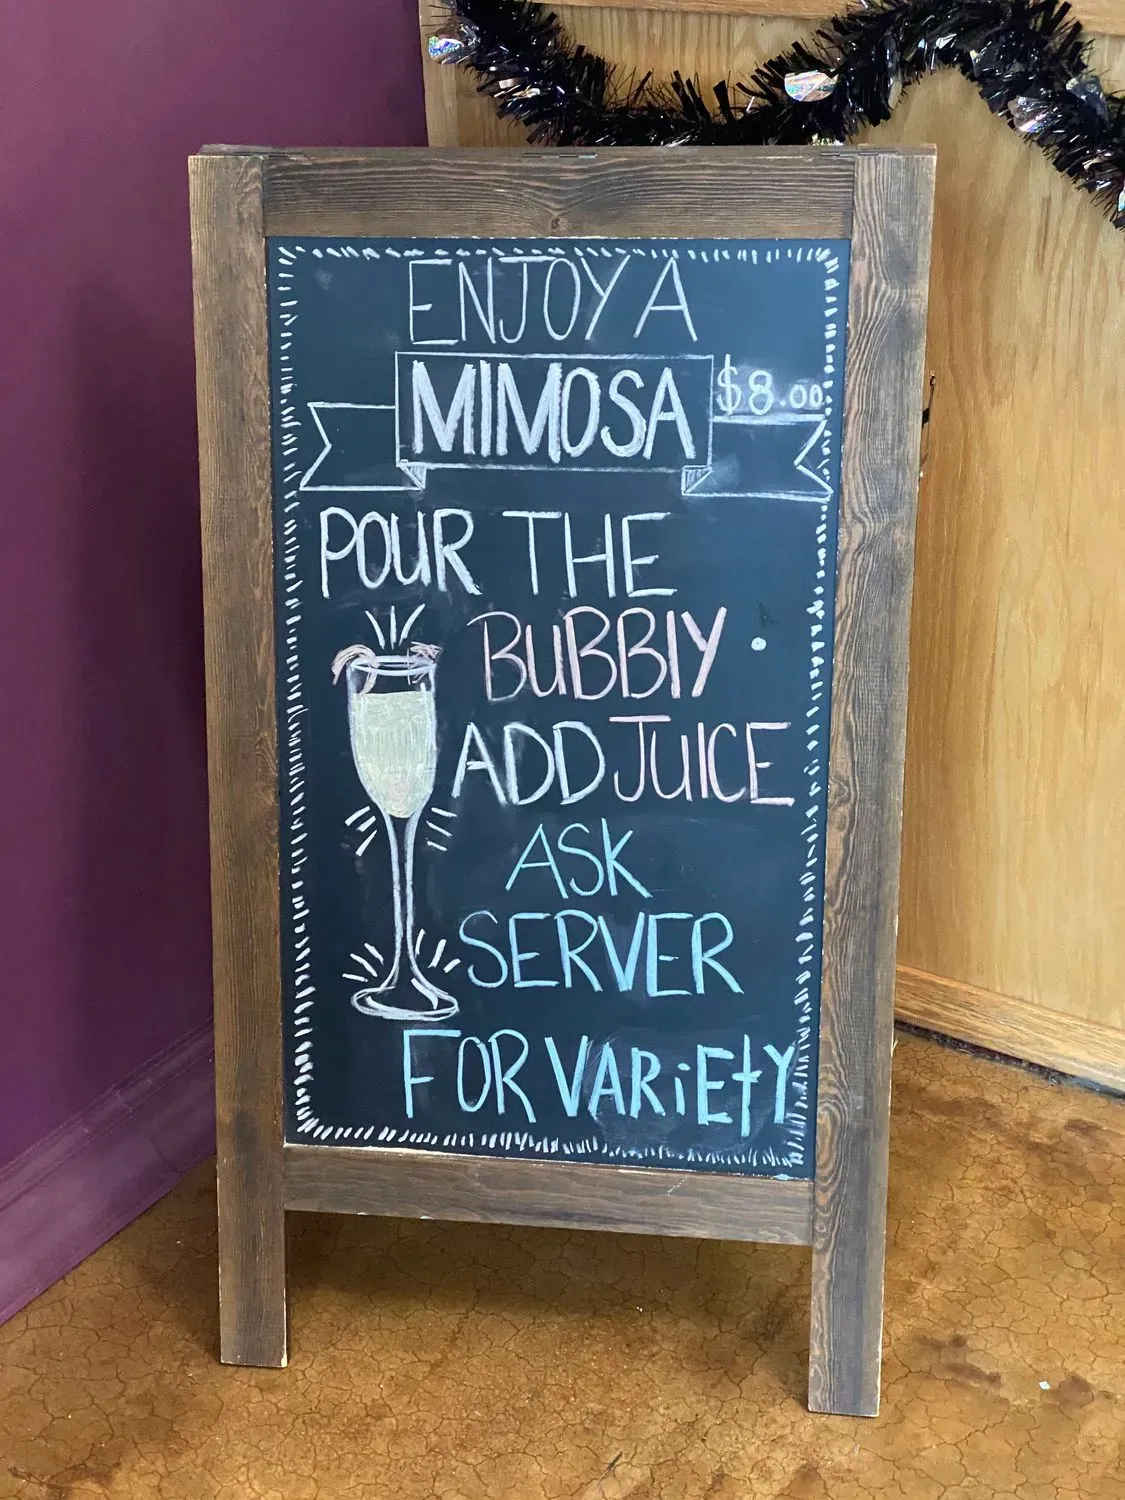 ENJOY A
MIMOSA $8.00
POUR THE
BUBBLY.
ADD JUICE
ASK
SERVER
FOR VARiEtY